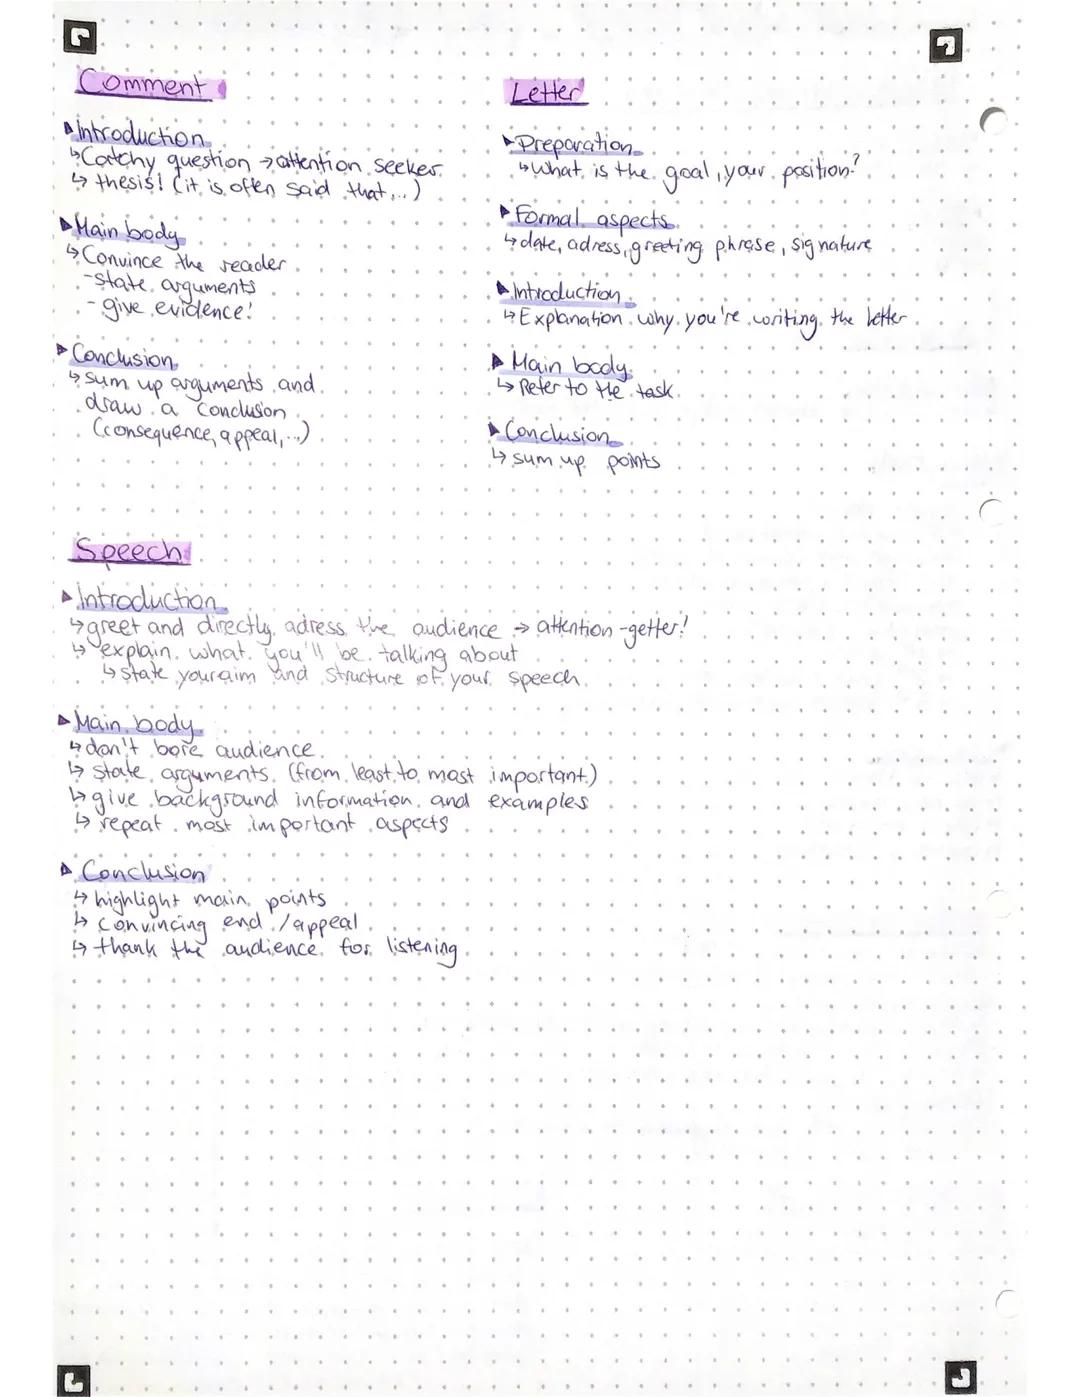 Comment
Introduction
↳ Catchy question → attention seeker
↳ thesis! (it is often said that...)
Main body
↳ Convince the reader
- state arguments
- give evidence!
Conclusion
↳ sum up arguments and
draw a conclusion
(consequence, appeal,...)
Letter
Preparation
↳ What is the goal, your position?
Formal aspects
↳ date, adress, greeting phrase, signature
Introduction
↳ Explanation why you're writing the letter
Main body
↳ Refer to the task
Conclusion
↳ sum up points
Speech
Introduction
↳ greet and directly adress the audience → attention-getter!
↳ explain what you'll be talking about
↳ state your aim and structure of your speech
Main body
↳ don't bore audience
↳ state arguments (from least to most important)
↳ give background information and examples
↳ repeat most important aspects
Conclusion
↳ highlight main points
↳ convincing end / appeal
↳ thank the audience for listening